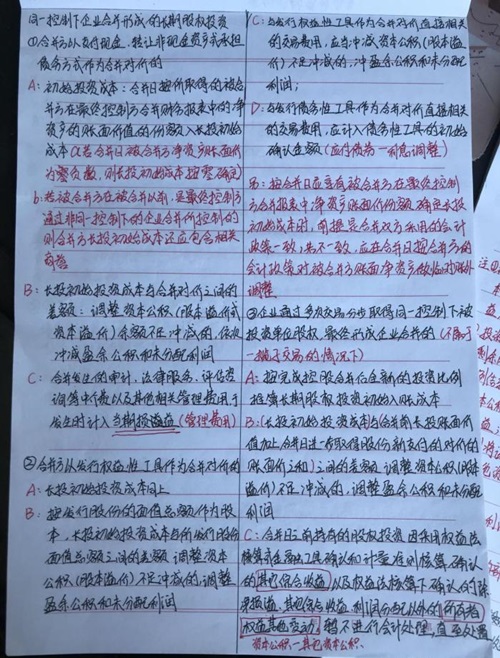 同一控制下企业合并形成的长期股权投资
①合并方以支付现金、转让非现金资产或承担
债务方式作为合并对价的
A：初始投资成本：合并日按取得的被合
并方在最终控制方合并财务报表中的净
资产的账面价值的份额入长投初始
成本(若合并日被合并方净资产账面价
为零负数，则长投初始成本按零确定)
b：若被合并方在被合并以前，是最终控制方
通过非同一控制下的企业合并所控制的
则合并方长投初始成本还应包含相关
商誉
B：长期初始投资成本与合并对价之间的
差额：调整资本公积(股本溢价或
资本溢价)余额不足冲减的，依次
冲减盈余公积和未分配利润
C：合并发生的审计，法律服务，评估咨
询等中介费以及其他相关管理费用于
发生时计入当期损益(管理费用)
②合并方以发行权益性工具作为合并对价的
A：长投初始投资成本同上
B：按发行股份的面值总额作为股
本，长投初始投资成本与所发行股份
面值总额之间的差额 调整资本
公积(股本溢价)不足冲减的，调整
盈余公积和未分配利润
C：与发行权益性工具作为合并对价直接相关
的交易费用，应当冲减资本公积(股本溢
价)不足冲减的，冲盈余公积和未分配
利润；
D：与发行债务性工具作为合并对价直接相关
的交易费用，应计入债务性工具的初始
确认金额(应付债券—利息调整)
另：按合并日应享有被合并方在最终控制
方合并报表中净资产账面价份额确定长投
初始成本时，前提是合并双方采用的会计
政策一致；若不一致，应在合并日按合并方的
会计政策对被合并方账面净资产
调整
③企业通过多次交易分步取得同一控制下被
投资单位股权，最终形成企业合并的(不属于
一揽子交易的情况下)
A：按完成控股合并后全新的投资比例
推算长期股权投资初始入账成本
B：(长投初始投资成本)与(合并前长投账面价
值加上合并日进一步取得股份新支付的对价的
账面价之和)之间的差额，调整资本公积(股本
溢价)不足冲减的，调整盈余公积和未分配
利润
C：合并日之前持有的股权投资因采用权益法
核算或金融工具确认和计量准则核算，确认
的其他综合收益以及权益法核算下确认的除
净损益、其他综合收益、利润分配以外的所有者
权益其他变动，暂不进行会计处理，直至处置
资本公积—其他资本公积